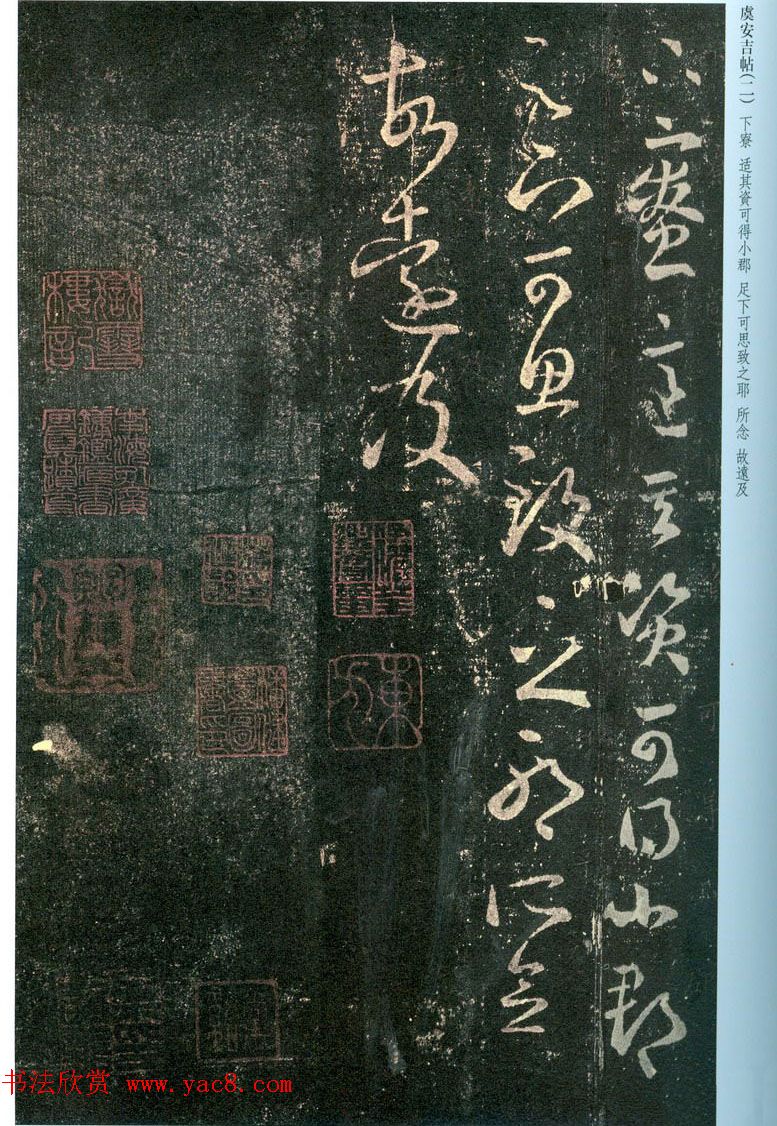 虞安吉帖(二) 下寮 适其資可得小郡 足下可思致之耶 所念 故遠及
下寮适其資可得小郡
足下可思致之耶所念
故遠及
嶽雪樓記
书法欣赏 www.yac8.com